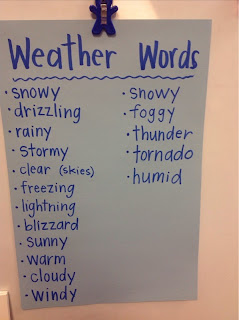 Weather Words
·snowy
·drizzling
·rainy
·stormy
·clear (skies)
·freezing
·lightning
·blizzard
·sunny
·warm
·cloudy
·windy
·snowy
·foggy
·thunder
·tornado
·humid